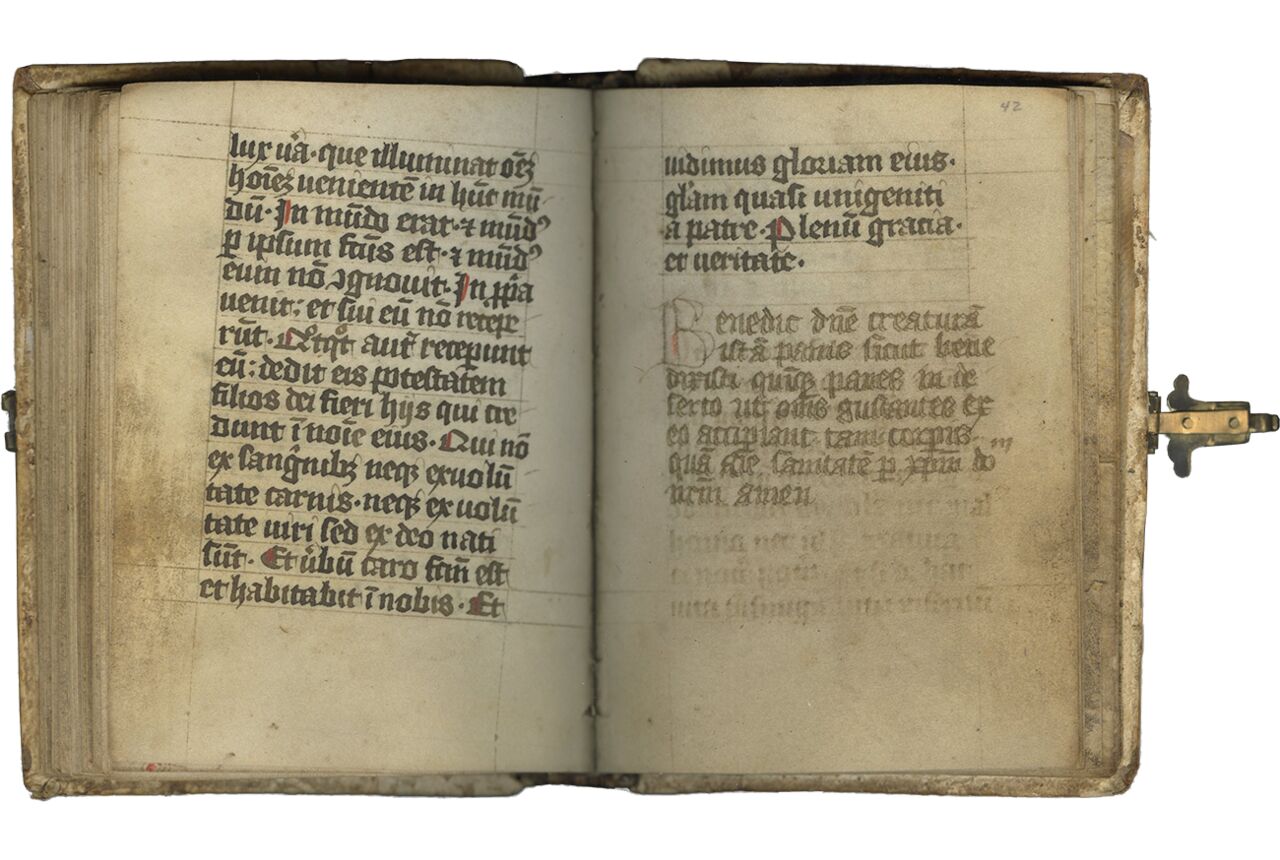 lux ũa · que illuminat oēz
hoīez uenientē in hūc mū
dū · In mūdo erat · ⁊ mūdꝰ
ꝑ ipsum fcūs est · ⁊ mūdꝰ
eum nō ꝯgnouit · In ꝓpa
uenit : et sui eū nō recepe
rūt · Qͦtqͦt aut̄ receꝑunt
eū : dedit eis potestatem
filios dei fieri hijs qui cre
dunt ī noīe eius · Qui nō
ex sanguibꝫ neqꝫ ex uolū
tate carnis · neqꝫ ex uolū
tate uiri sed ex deo nati
sūt · Et ubū caro fcm̄ est
et habitabit ī nobis · Et
42
uidimus gloriam eius ·
glam quasi unigeniti
a patre · Plenū gracia ·
et ueritate ·
Benedic dñe creaturā
istā panis sicut bene
dixisti quīqꝫ panes in de
serto ut oms̄ gustantes ex
eo accipiant tam corporis
quā aīe sanitatē ꝑ xpm̄ do
m
nrm̄ amen